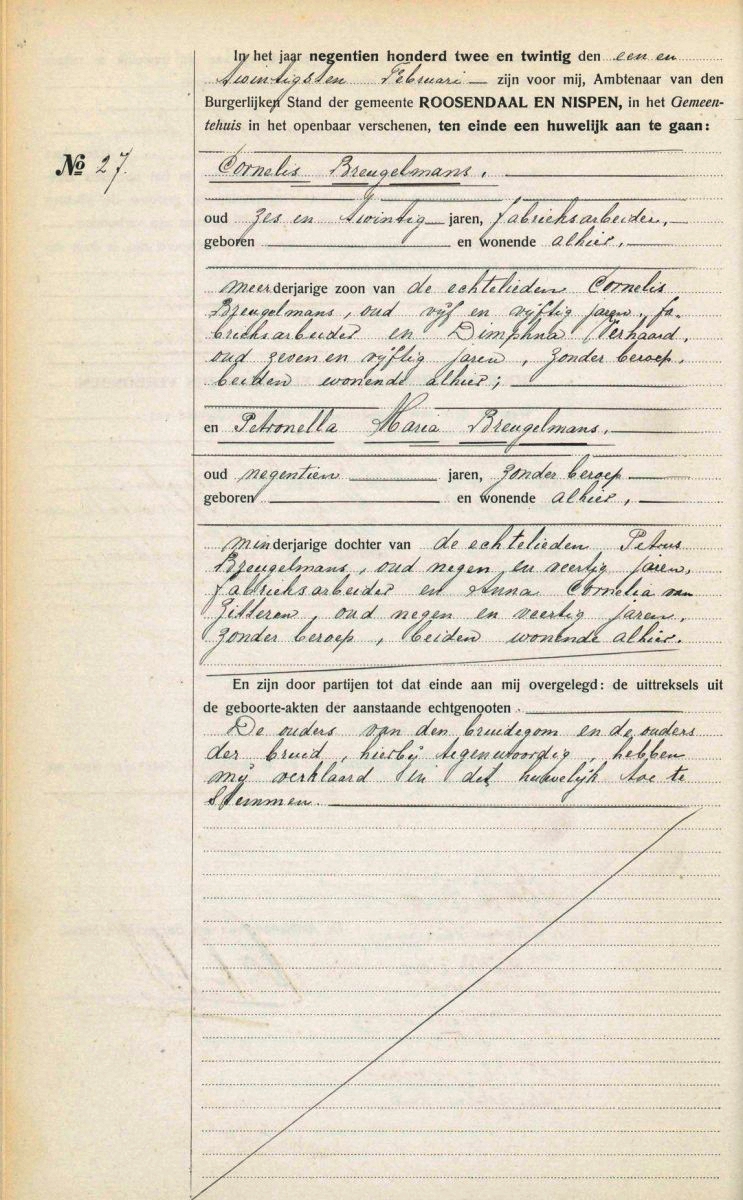 In het jaar negentien honderd twee en twintig den een en
twintigsten Februari — zijn voor mij, Ambtenaar van den
Burgerlijken Stand der gemeente ROOSENDAAL EN NISPEN, in het Gemeen-
tehuis in het openbaar verschenen, ten einde een huwelijk aan te gaan:
No 27.
Cornelis Breugelmans,
oud zes en twintig jaren, fabrieksarbeider,
geboren en wonende alhier,
meerderjarige zoon van de echtelieden Cornelis
Breugelmans, oud vijf en vijftig jaren, fa-
brieksarbeider en Dimphna Verhaard,
oud zeven en vijftig jaren, zonder beroep,
beiden wonende alhier;
en Petronella Maria Breugelmans,
oud negentien jaren, zonder beroep
geboren en wonende alhier,
minderjarige dochter van de echtelieden Petrus
Breugelmans, oud negen en veertig jaren,
fabrieksarbeider en Anna Cornelia van
Zitteren, oud negen en veertig jaren,
zonder beroep, beiden wonende alhier.
En zijn door partijen tot dat einde aan mij overgelegd: de uittreksels uit
de geboorte-akten der aanstaande echtgenooten.
De ouders van den bruidegom en de ouders
der bruid, hierbij tegenwoordig, hebben
mij verklaard in dit huwelijk toe te
stemmen.